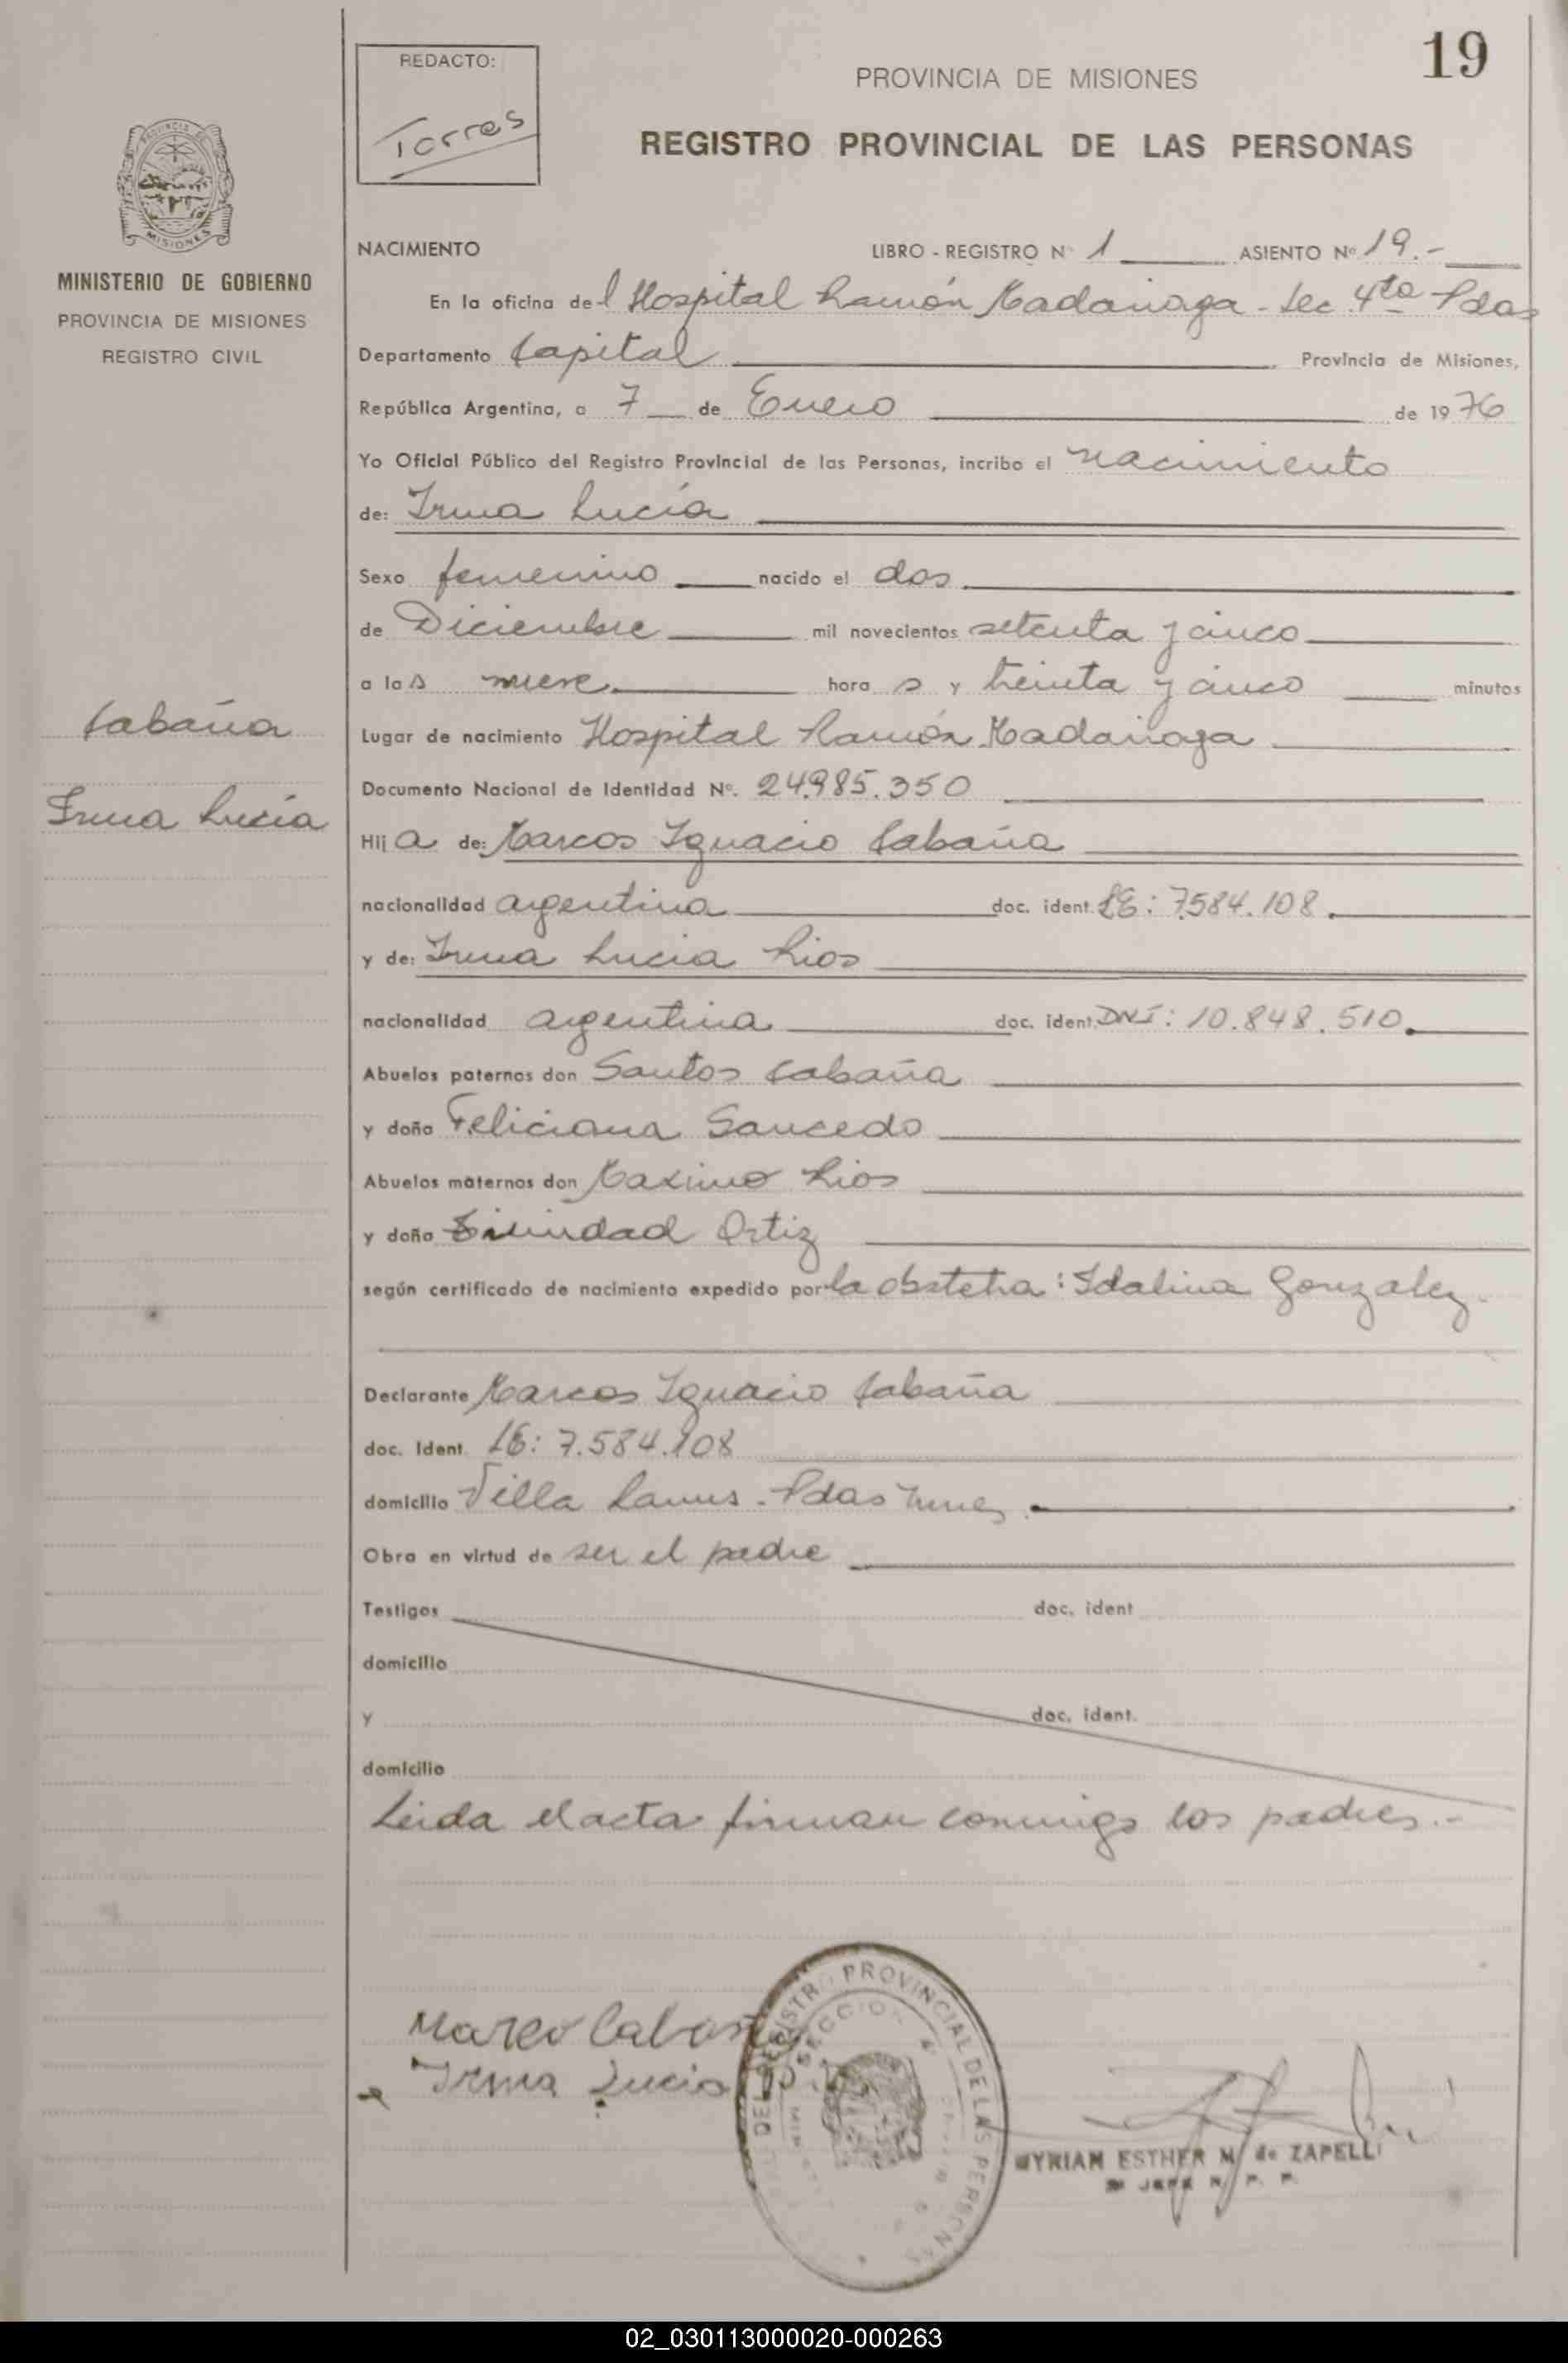 19
REDACTO:
Torres
PROVINCIA DE MISIONES
REGISTRO PROVINCIAL DE LAS PERSONAS
MISIONES
MINISTERIO DE GOBIERNO
PROVINCIA DE MISIONES
REGISTRO CIVIL
NACIMIENTO LIBRO - REGISTRO Nº 1 ASIENTO Nº 19.-
En la oficina del Hospital Ramón Madariaga - Sec. 4ta Pdas
Departamento Capital Provincia de Misiones,
República Argentina, a 7 de Enero de 1976
Yo Oficial Público del Registro Provincial de las Personas, incribo el nacimiento
de: Irma Lucía
Sexo femenino nacido el dos
de Diciembre mil novecientos setenta y cinco
a las nueve hora s y treinta y cinco minutos
Cabaña
Lugar de nacimiento Hospital Ramón Madariaga
Documento Nacional de Identidad Nº. 24.985.350
Irma Lucía
Hija de: Marcos Ignacio Cabaña
nacionalidad argentina doc. ident. LE: 7.584.108.
y de: Irma Lucia Rios
nacionalidad argentina doc. ident. DNI: 10.848.510.
Abuelos paternos don Santos Cabaña
y doña Feliciana Saucedo
Abuelos maternos don Maximo Rios
y doña Trinidad Ortiz
según certificado de nacimiento expedido por la obstetra: Idalina Gonzalez.
Declarante Marcos Ignacio Cabaña
doc. Ident. LE: 7.584.108
domicilio Villa Lanus - Pdas
Obra en virtud de ser el padre
Testigos doc. ident
domicilio
y doc. ident.
domicilio
Leida el acta firman conmigo los padres.-
DEL REGISTRO PROVINCIAL DE LAS PERSONAS
SECCION 4
Marco Cabaña
Irma Lucia
MYRIAM ESTHER M. de ZAPELLI
JEFE R. P. P.
02_030113000020-000263